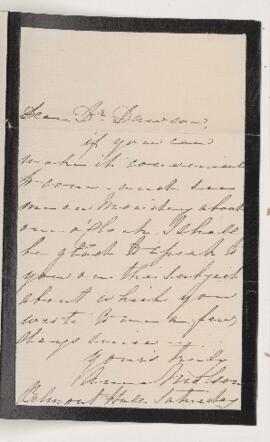 Dear Dr. Dawson,
if you can
make it convenient
to come and see
me on Monday about
one o'Clock I shall
be glad to speak to
you on the subject
about which you
wrote to me a few
days since.
Yours truly
Anne Molson
Belmont Hall Saturday